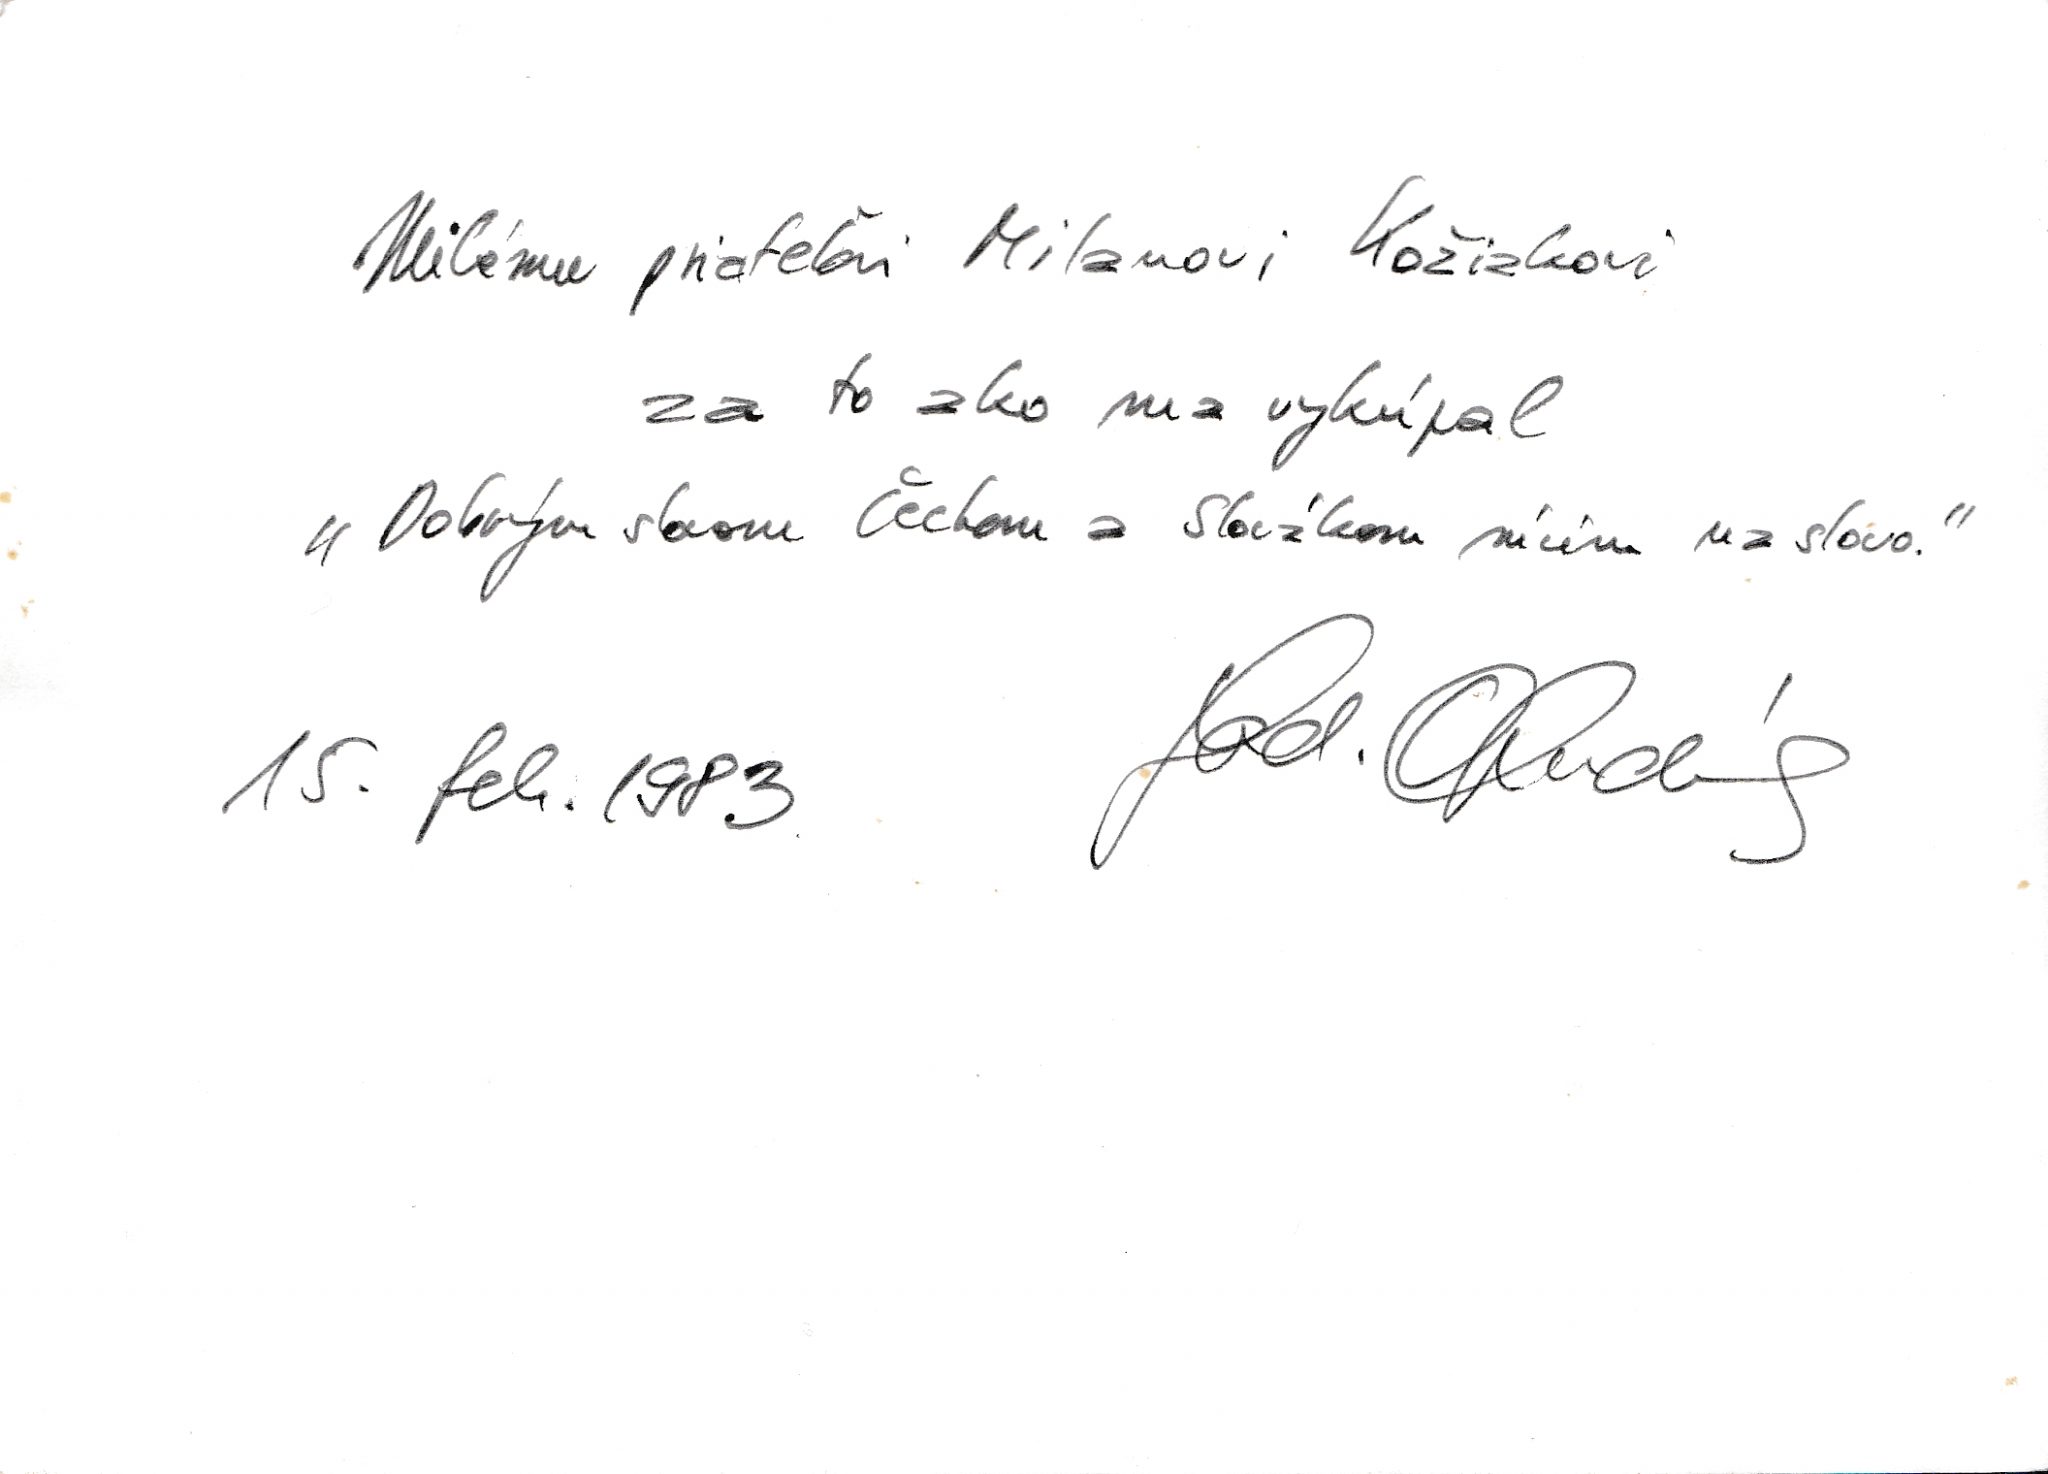 Milému priateľovi Milanovi Kožiakovi
za to ako ma vykúpal
„Dobrým slovom Čechom a Slovákom mierim na slovo."
15. feb. 1983